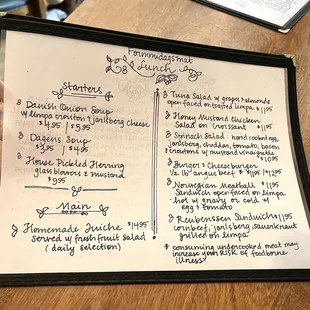 Formiddagsmat
Lunch
Starters
Danish Onion Soup
w/limpa crouton & jarlsberg cheese
$4.95 / $5.95
Dagens Soup
House Pickled Herring
glass blowers & mustard
$9.95
Main
Homemade Quiche $14.95
Served w/ fresh fruit salad
(daily selection)
Tuna Salad w/ grapes & almonds
open faced on toasted limpa $11.95
Honey Mustard Chicken
Salad on Croissant $11.95
Spinach Salad - hard cooked egg,
jarlsberg, cheddar, tomato, bacon
& croutons w/ mustard vinaigrette
$10.95
Burger & Cheeseburger
1/2 lb angus beef $12.95
Norwegian Meatball $11.95
Sandwich open faced on limpa
hot w/ gravy or cold w/
egg & tomato
Reubenssen Sandwich $11.95
corn beef, jarlsberg, sauerkraut
grilled on limpa
* consuming undercooked meat may
increase your RISK of foodborne
illness